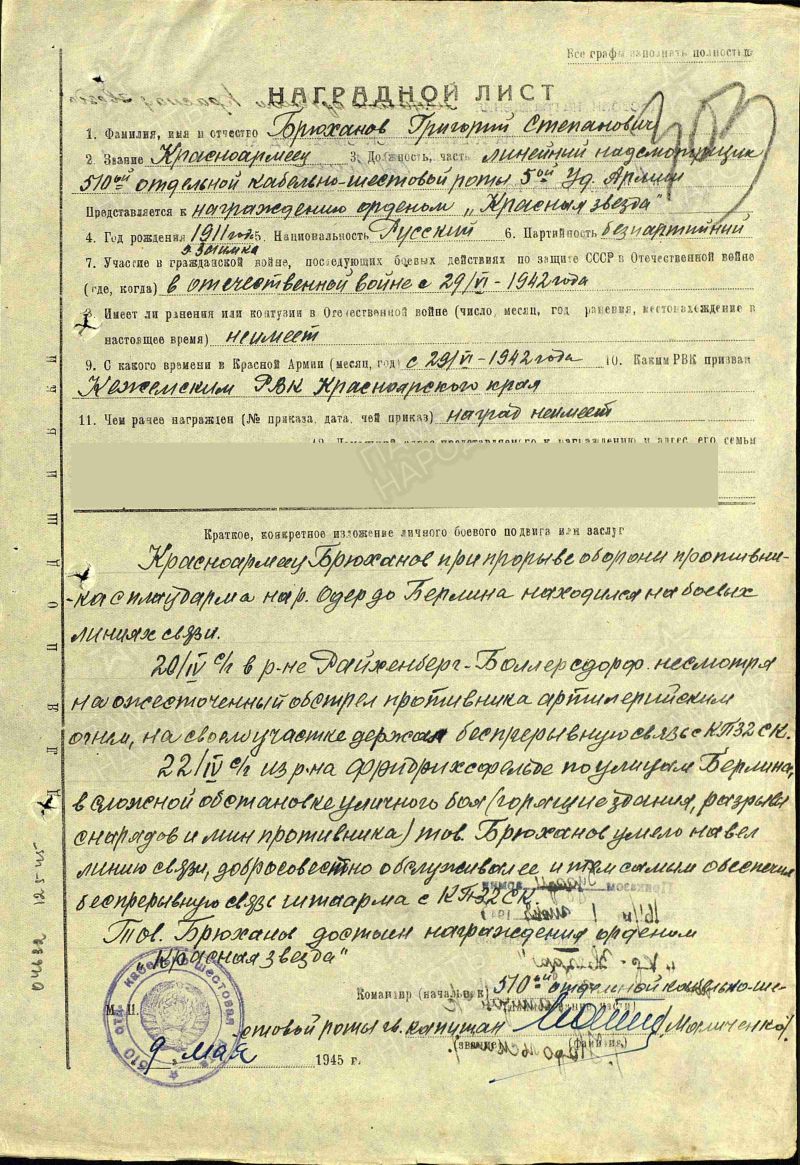 Все графы заполнять полностью
НАГРАДНОЙ ЛИСТ
1. Фамилия, имя и отчество Брюханов Григорий Степанович
2. Звание Красноармеец 3. Должность, часть линейный надсмотрщик
510ой отдельной кабельно-шестовой роты 5ой Уд. Армии
Представляется к награждению орденом „Красная звезда"
4. Год рождения 1911 года 5. Национальность Русский 6. Партийность безпартийный
7. Участие в гражданской войне, последующих боевых действиях по защите СССР и Отечественной войне
(где, когда) в отечественной войне с 29/VI-1942 года
8. Имеет ли ранения или контузии в Отечественной войне (число, месяц, год ранения, местонахождение в
настоящее время) неимеет
9. С какого времени в Красной Армии (месяц, год) с 29/VI-1942 года 10. Каким РВК призван
Кежемским РВК Красноярского края
11. Чем ранее награжден (№ приказа, дата, чей приказ) наград неимеет
12. Домашний адрес представляемого к награждению и адрес его семьи
Краткое, конкретное изложение личного боевого подвига или заслуг
Красноармеец Брюханов при прорыве оборони противни-
-ка с плаударма на р. Одер до Берлина находился на боевых
линиях связи.
20/IV с/г в р-не Райхенберг-Боллерсдорф. несмотря
на ожесточенный обстрел противника артилерийским
огнем, на своем участке держал беспрерывную связь с КП 32 СК.
22/IV с/г из р-на Фридрихсфельде по улицам Берлина,
в сложной обстановке уличного боя (горящие здания, разрывы
снарядов и мин противника) тов. Брюханов умело навел
линию связи, добросовестно обслуживал ее и тем самым обеспечил
беспрерывную связь штаарма с КП 32 СК.
Тов. Брюханов достоин награждения орденом
„Красная звезда"
Командир (начальник) 510ой отдельной кабельно-ше-
М. П.
стовой роты гв. капитан
(звание) (фамилия)
9 мая 1945 г.
510 отд. кабельно шестовая